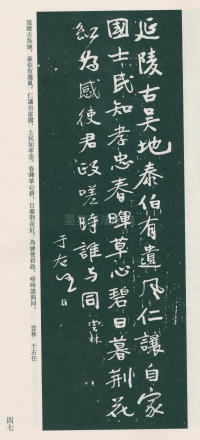 延陵古吳地泰伯有遺風仁讓自家
國士民知孝忠春暉草心碧日暮荆花
紅為感使君政嗟時誰與同 雲林
于右任
延陵古吳地，泰伯有遺風。仁讓自家國，士民知孝忠。春暉草心碧，日暮荆花紅。為感使君政，嗟時誰與同。 雲林 于右任
四七